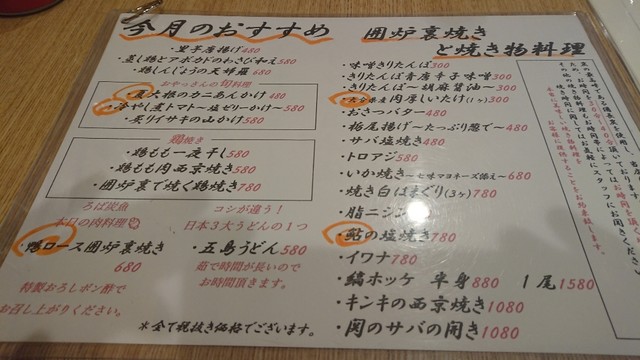 今月のおすすめ
・里芋唐揚げ480
・蒸し鶏とアボカドのわさび和え580
・鶏しんじょうの天婦羅680
おやっさんの旬料理
のカニあんかけ480
・冷やし煮トマト～塩ゼリーかけ～580
・炙りイサキの山かけ580
鶏焼き
・鶏もも一夜干し580
・鶏もも肉西京焼き580
・囲炉裏で焼く鶏焼き780
ろば炭魚
本日の肉料理
・鴨ロース囲炉裏焼き
680
特製おろしポン酢で
お召し上がりください。
コシが違う！
日本3大うどんの1つ
・五島うどん580
茹で時間が長いので
お時間頂きます。
＊全て税抜き価格でございます。
囲炉裏焼き
と焼き物料理
・味噌きりたんぽ300
・きりたんぽ青唐辛子味噌300
・きりたんぽ～胡麻醤油～300
・大分県産肉厚しいたけ(1ヶ)300
・おさつバター480
・栃尾揚げ～たっぷり葱で～480
・サバ塩焼き480
・トロアジ580
・いか焼き～七味マヨネーズ添え～680
・焼き白はまぐり(3ヶ)780
・脂ニシン
・鮎の塩焼き780
・イワナ780
・縞ホッケ 半身880 1尾1580
・キンキの西京焼き1080
・関のサバの開き1080